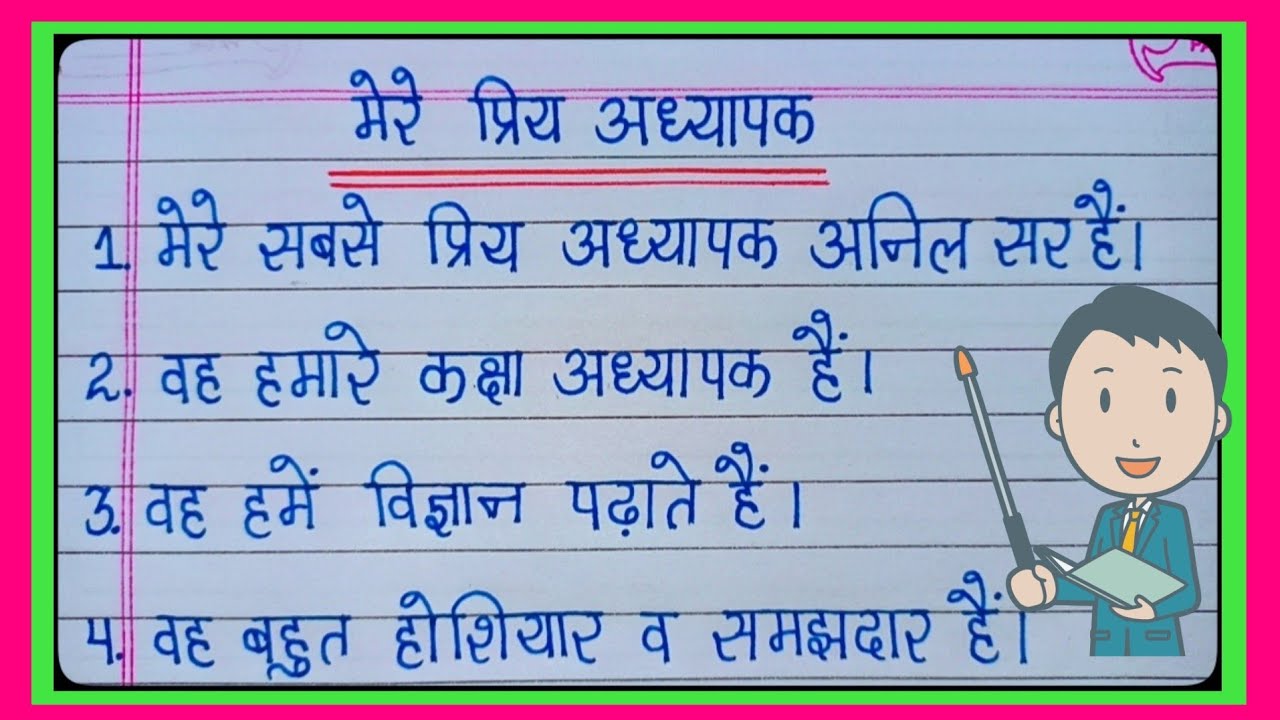 मेरे प्रिय अध्यापक
1. मेरे सबसे प्रिय अध्यापक अनिल सर हैं।
2. वह हमारे कक्षा अध्यापक हैं।
3. वह हमें विज्ञान पढ़ाते हैं।
4. वह बहुत होशियार व समझदार हैं।